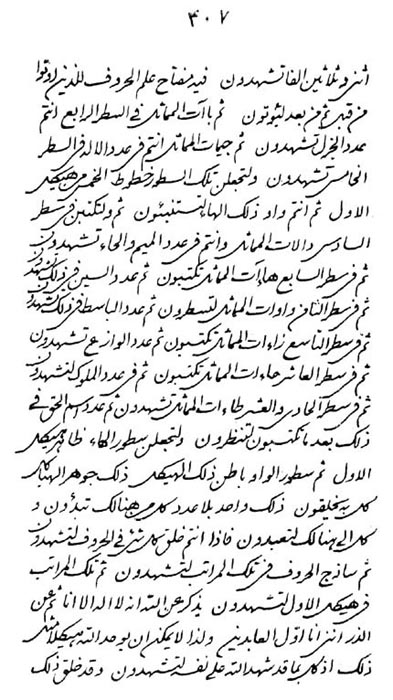 ٤٠٧
اثنی و ثلاثین الفا تشهدون فیه مفتاح علم الحروف للذین اوتوا
من قبل ثم من بعد لیؤتون ثم باآت المماثل فی السطر الرابع انتم
عدد الجزل تشهدون ثم جیمات المماثل انتم فی عدد الاله فی السطر
الخامس تشهدون ولتجعلن تلک السطور خطوط الخمس من هیکل
الاول ثم انتم واو ذلک الهاء لتستنبئون ثم ولتکتبن فی سطر
السادس دالات المماثل وانتم فی عدد المیم والحاء تشهدون
ثم فی سطر السابع هاآت المماثل تکتبون ثم عدد السین فی ذلک تشهدون
ثم فی سطر الثامن واوات المماثل لتسطرون ثم عدد الباسط فی ذلک تشهدون
ثم فی سطر التاسع زاءات المماثل تکتبون ثم عدد الوازع تشهدون
ثم فی سطر العاشر حاءات المماثل تکتبون ثم فی عدد الملوک لتشهدون
ثم فی سطر الحادی والعشر طاءات المماثل تشهدون ثم عدد اسم الحق فی
ذلک بعد ما تکتبون لتنظرون ولتجعلن سطور الهاء ظاهر هیکل
الاول ثم سطور الواو باطن ذلک الهیکل ذلک جوهر الهیاکل
کل به یخلقون ذلک واحد بلا عدد کل من هنالک تبدؤن و
کل الی هنالک لتعبدون فاذا انتم خلق کل شئ فی الحروف لتشهدون
ثم ساذج الحروف فی تلک المراتب لتشهدون ثم تلک المراتب
فی هیکل الاول لتشهدون یذکر عن الله انه لا اله الا انا ثم عن
الذر اننی انا اول العابدین ولذا لا یمکن ان یوحد الله هیکلا مثل
ذلک اذ کل بما قد شهد الله علی نفسه لتشهدون وقد خلق ذلک